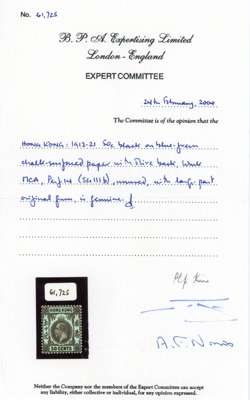 No. 61,725
B. P. A. Expertising Limited
London - England
EXPERT COMMITTEE
24th February, 2000
The Committee is of the opinion that the
HONG KONG: 1912-21 50c black on blue-green
chalk-surfaced paper with olive back, Wmk
MCA, Perf 14 (SG 111b), unused, with large part
original gum, is genuine.
61,725
HONG KONG
50 CENTS
Neither the Company nor the members of the Expert Committee can accept
any liability, either collective or individual, for any opinion expressed.